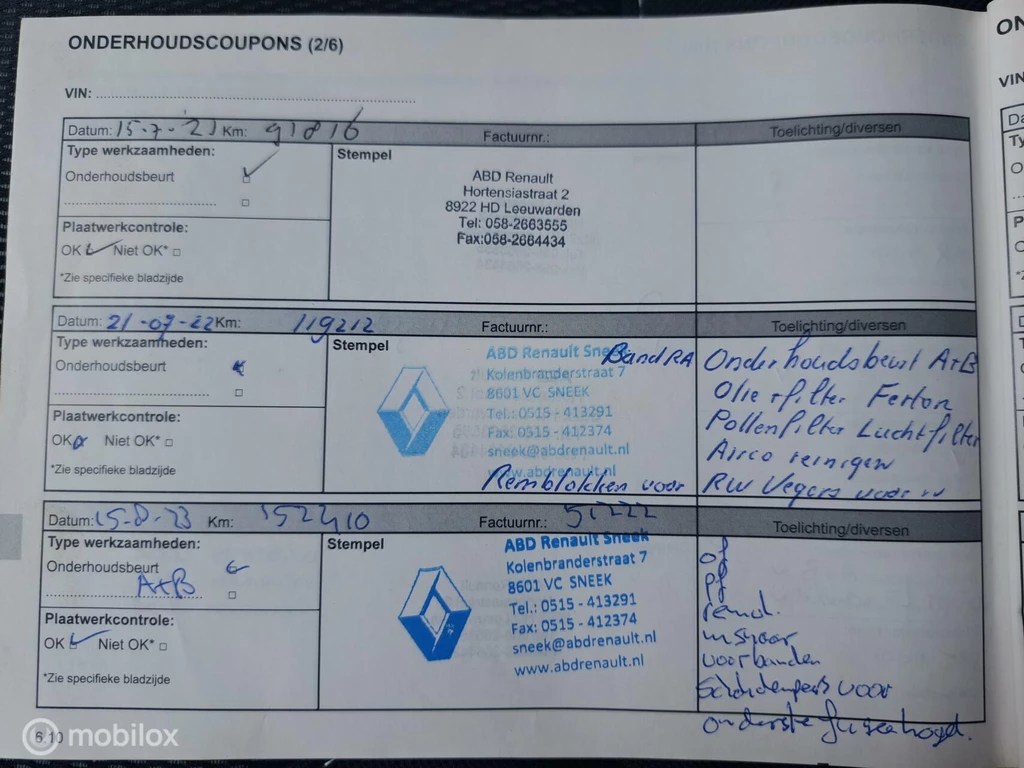 ONDERHOUDSCOUPONS (2/6)
VIN:
Datum: 15-7-'21 Km: 91816 Factuurnr.: Toelichting/diversen
Type werkzaamheden:
Onderhoudsbeurt
Plaatwerkcontrole:
OK Niet OK*
*Zie specifieke bladzijde
Stempel
ABD Renault
Hortensiastraat 2
8922 HD Leeuwarden
Tel: 058-2663555
Fax:058-2664434
Datum: 21-07-22 Km: 119212 Factuurnr.: Toelichting/diversen
Type werkzaamheden:
Onderhoudsbeurt
Plaatwerkcontrole:
OK Niet OK*
*Zie specifieke bladzijde
Stempel
ABD Renault Sneek
Kolenbranderstraat 7
8601 VC SNEEK
Tel.: 0515 - 413291
Fax: 0515 - 412374
sneek@abdrenault.nl
www.abdrenault.nl
Band RA
Remblokken voor
Onderhoudsbeurt A+B
Olie + filter
Pollenfilter Luchtfilter
Airco reinigen
RW Vegers voor
Datum: 15-8-23 Km: 152410 Factuurnr.: 51222 Toelichting/diversen
Type werkzaamheden:
Onderhoudsbeurt
A+B
Plaatwerkcontrole:
OK Niet OK*
*Zie specifieke bladzijde
Stempel
ABD Renault Sneek
Kolenbranderstraat 7
8601 VC SNEEK
Tel.: 0515 - 413291
Fax: 0515 - 412374
sneek@abdrenault.nl
www.abdrenault.nl
of
pf
remd.
voorbanden
voor
onderste fuseekogel.
6/10
mobilox
ON
VIN